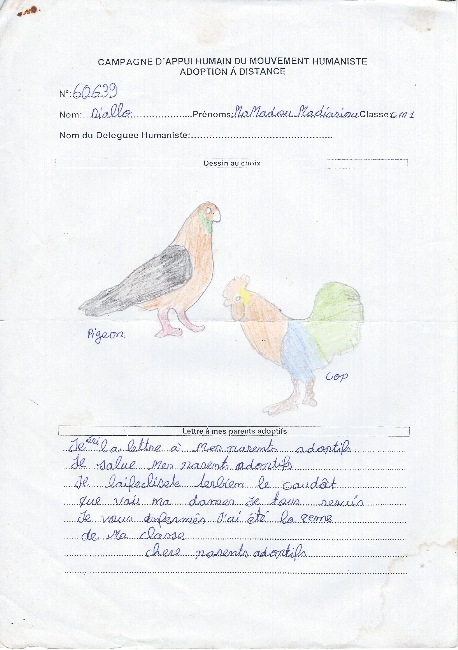 CAMPAGNE D'APPUI HUMAIN DU MOUVEMENT HUMANISTE
ADOPTION À DISTANCE
N°: 60639
Nom: Diallo Prénoms: MaMadou Madiariou Classe: cm1
Nom du Deleguee Humaniste:
Dessin au choix
Pigeon
Cop
Lettre à mes parents adoptifs
Je la lettre à Mes parents adoptifs
Je salue Mes parents adoptifs
Je le
que vous ma Je vous
Je vous J'ai été la
de Ma classe
chere parents adoptifs